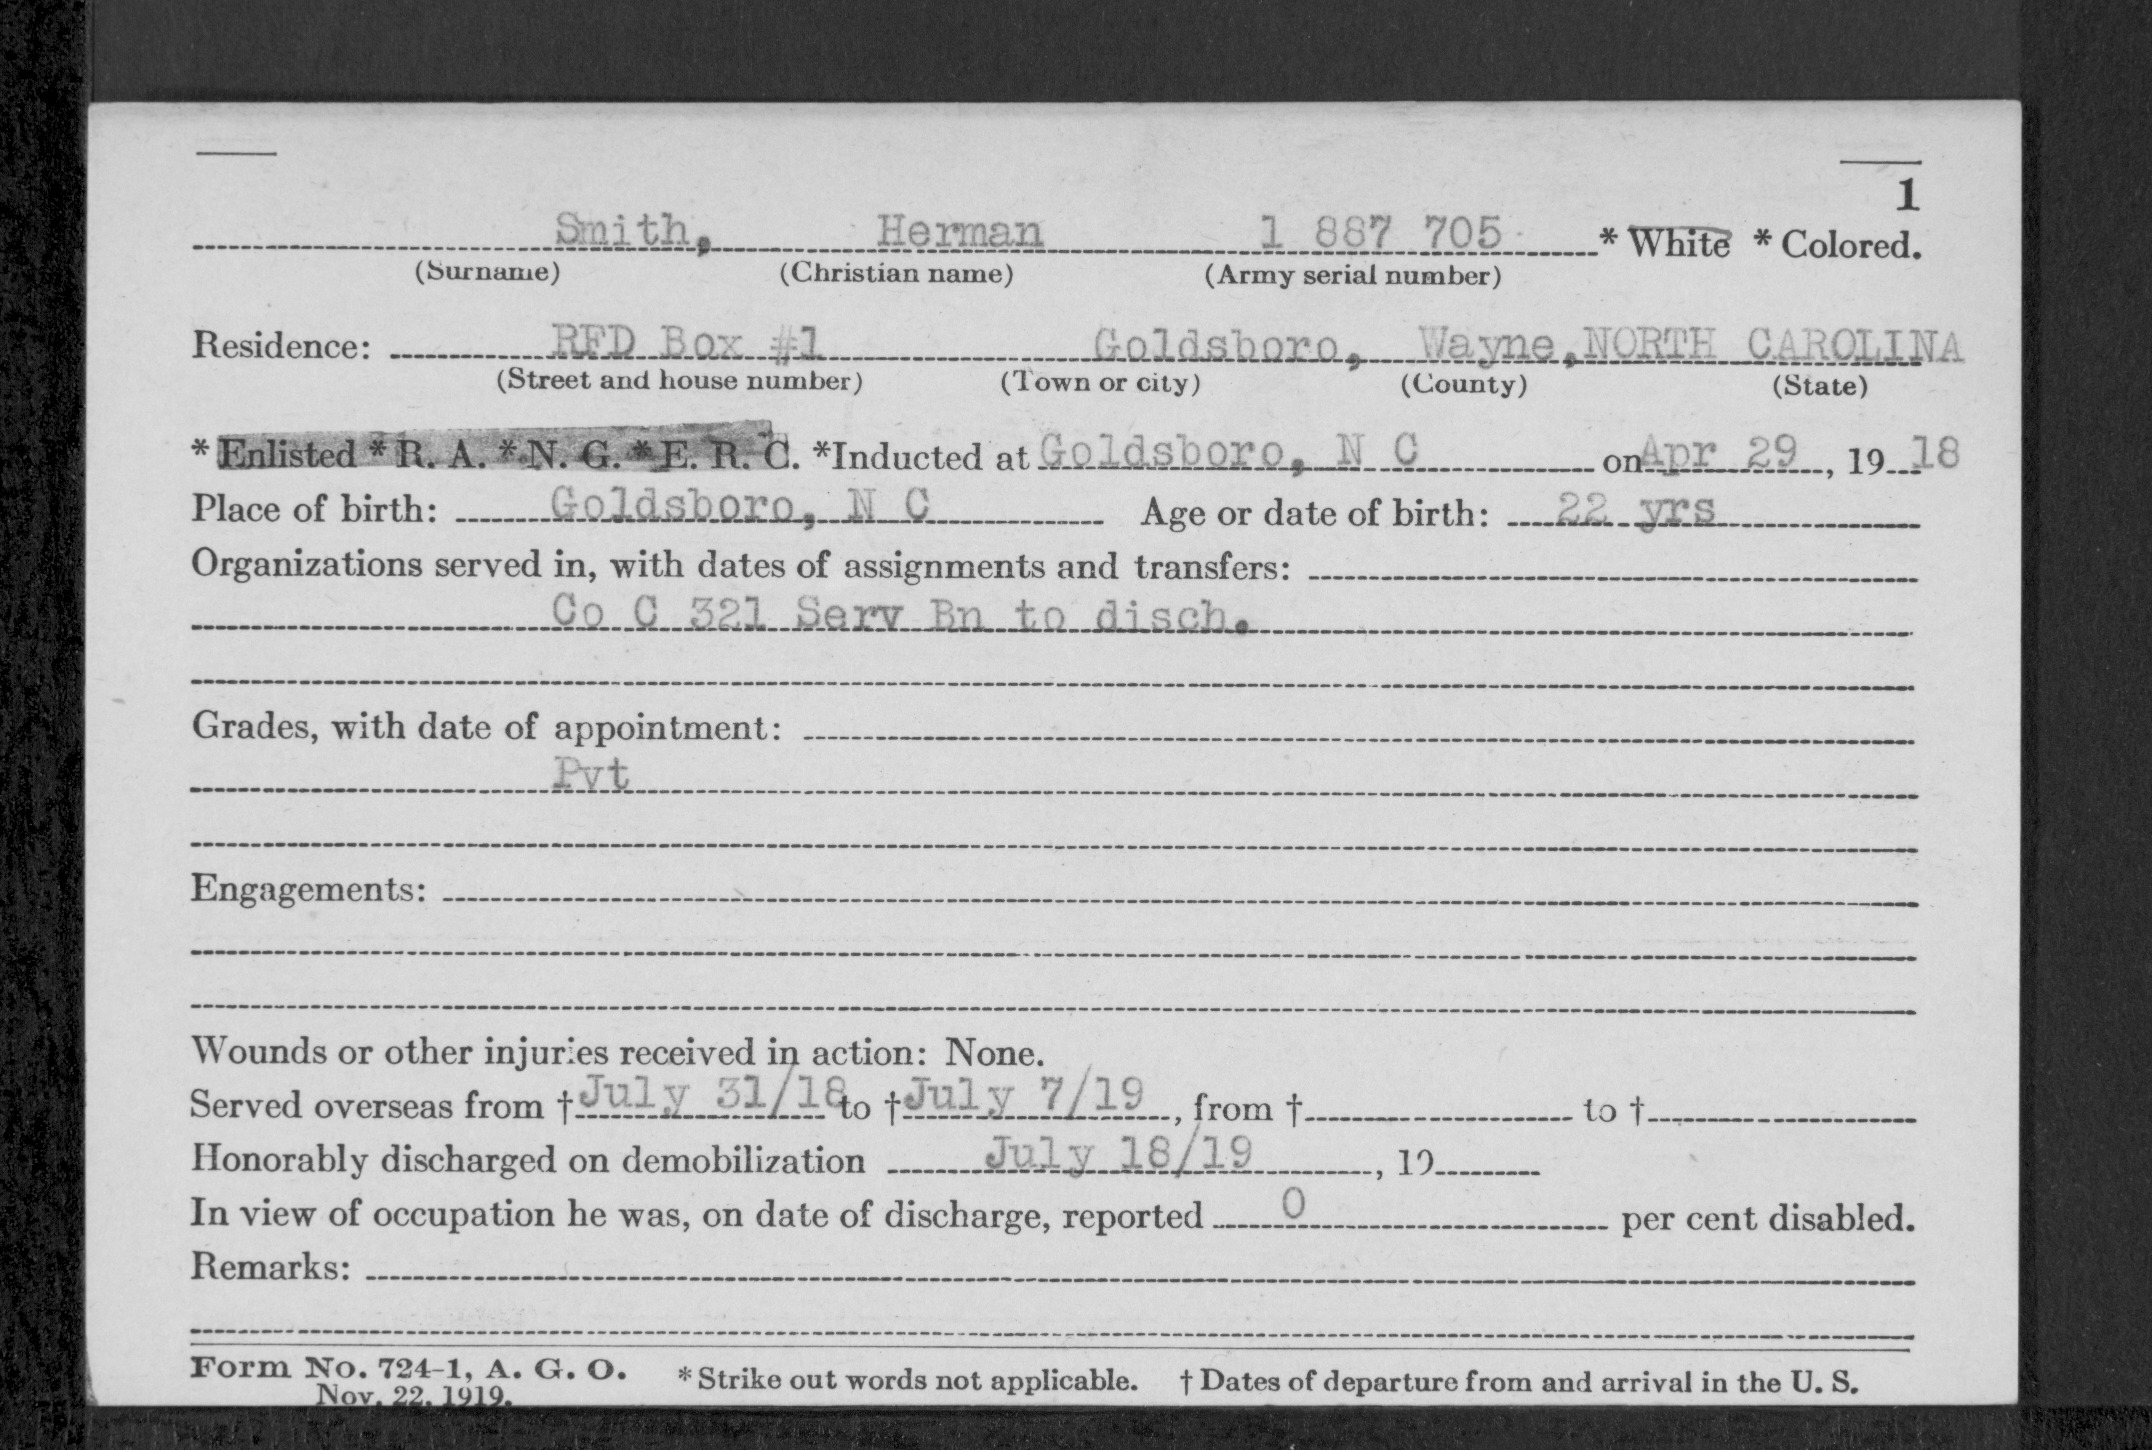 1
Smith, Herman 1 887 705 * White * Colored.
(Surname) (Christian name) (Army serial number)
Residence: RFD Box #1 Goldsboro, Wayne, NORTH CAROLINA
(Street and house number) (Town or city) (County) (State)
* Enlisted * R. A. * N. G. * E. R. C. *Inducted at Goldsboro, N C on Apr 29, 1918
Place of birth: Goldsboro, N C Age or date of birth: 22 yrs
Organizations served in, with dates of assignments and transfers:
Co C 321 Serv Bn to disch.
Grades, with date of appointment:
Pvt
Engagements:
Wounds or other injuries received in action: None.
Served overseas from † July 31/18 to † July 7/19, from † to †
Honorably discharged on demobilization July 18/19, 19
In view of occupation he was, on date of discharge, reported 0 per cent disabled.
Remarks:
Form No. 724-1, A. G. O. * Strike out words not applicable. † Dates of departure from and arrival in the U. S.
Nov. 22, 1919.